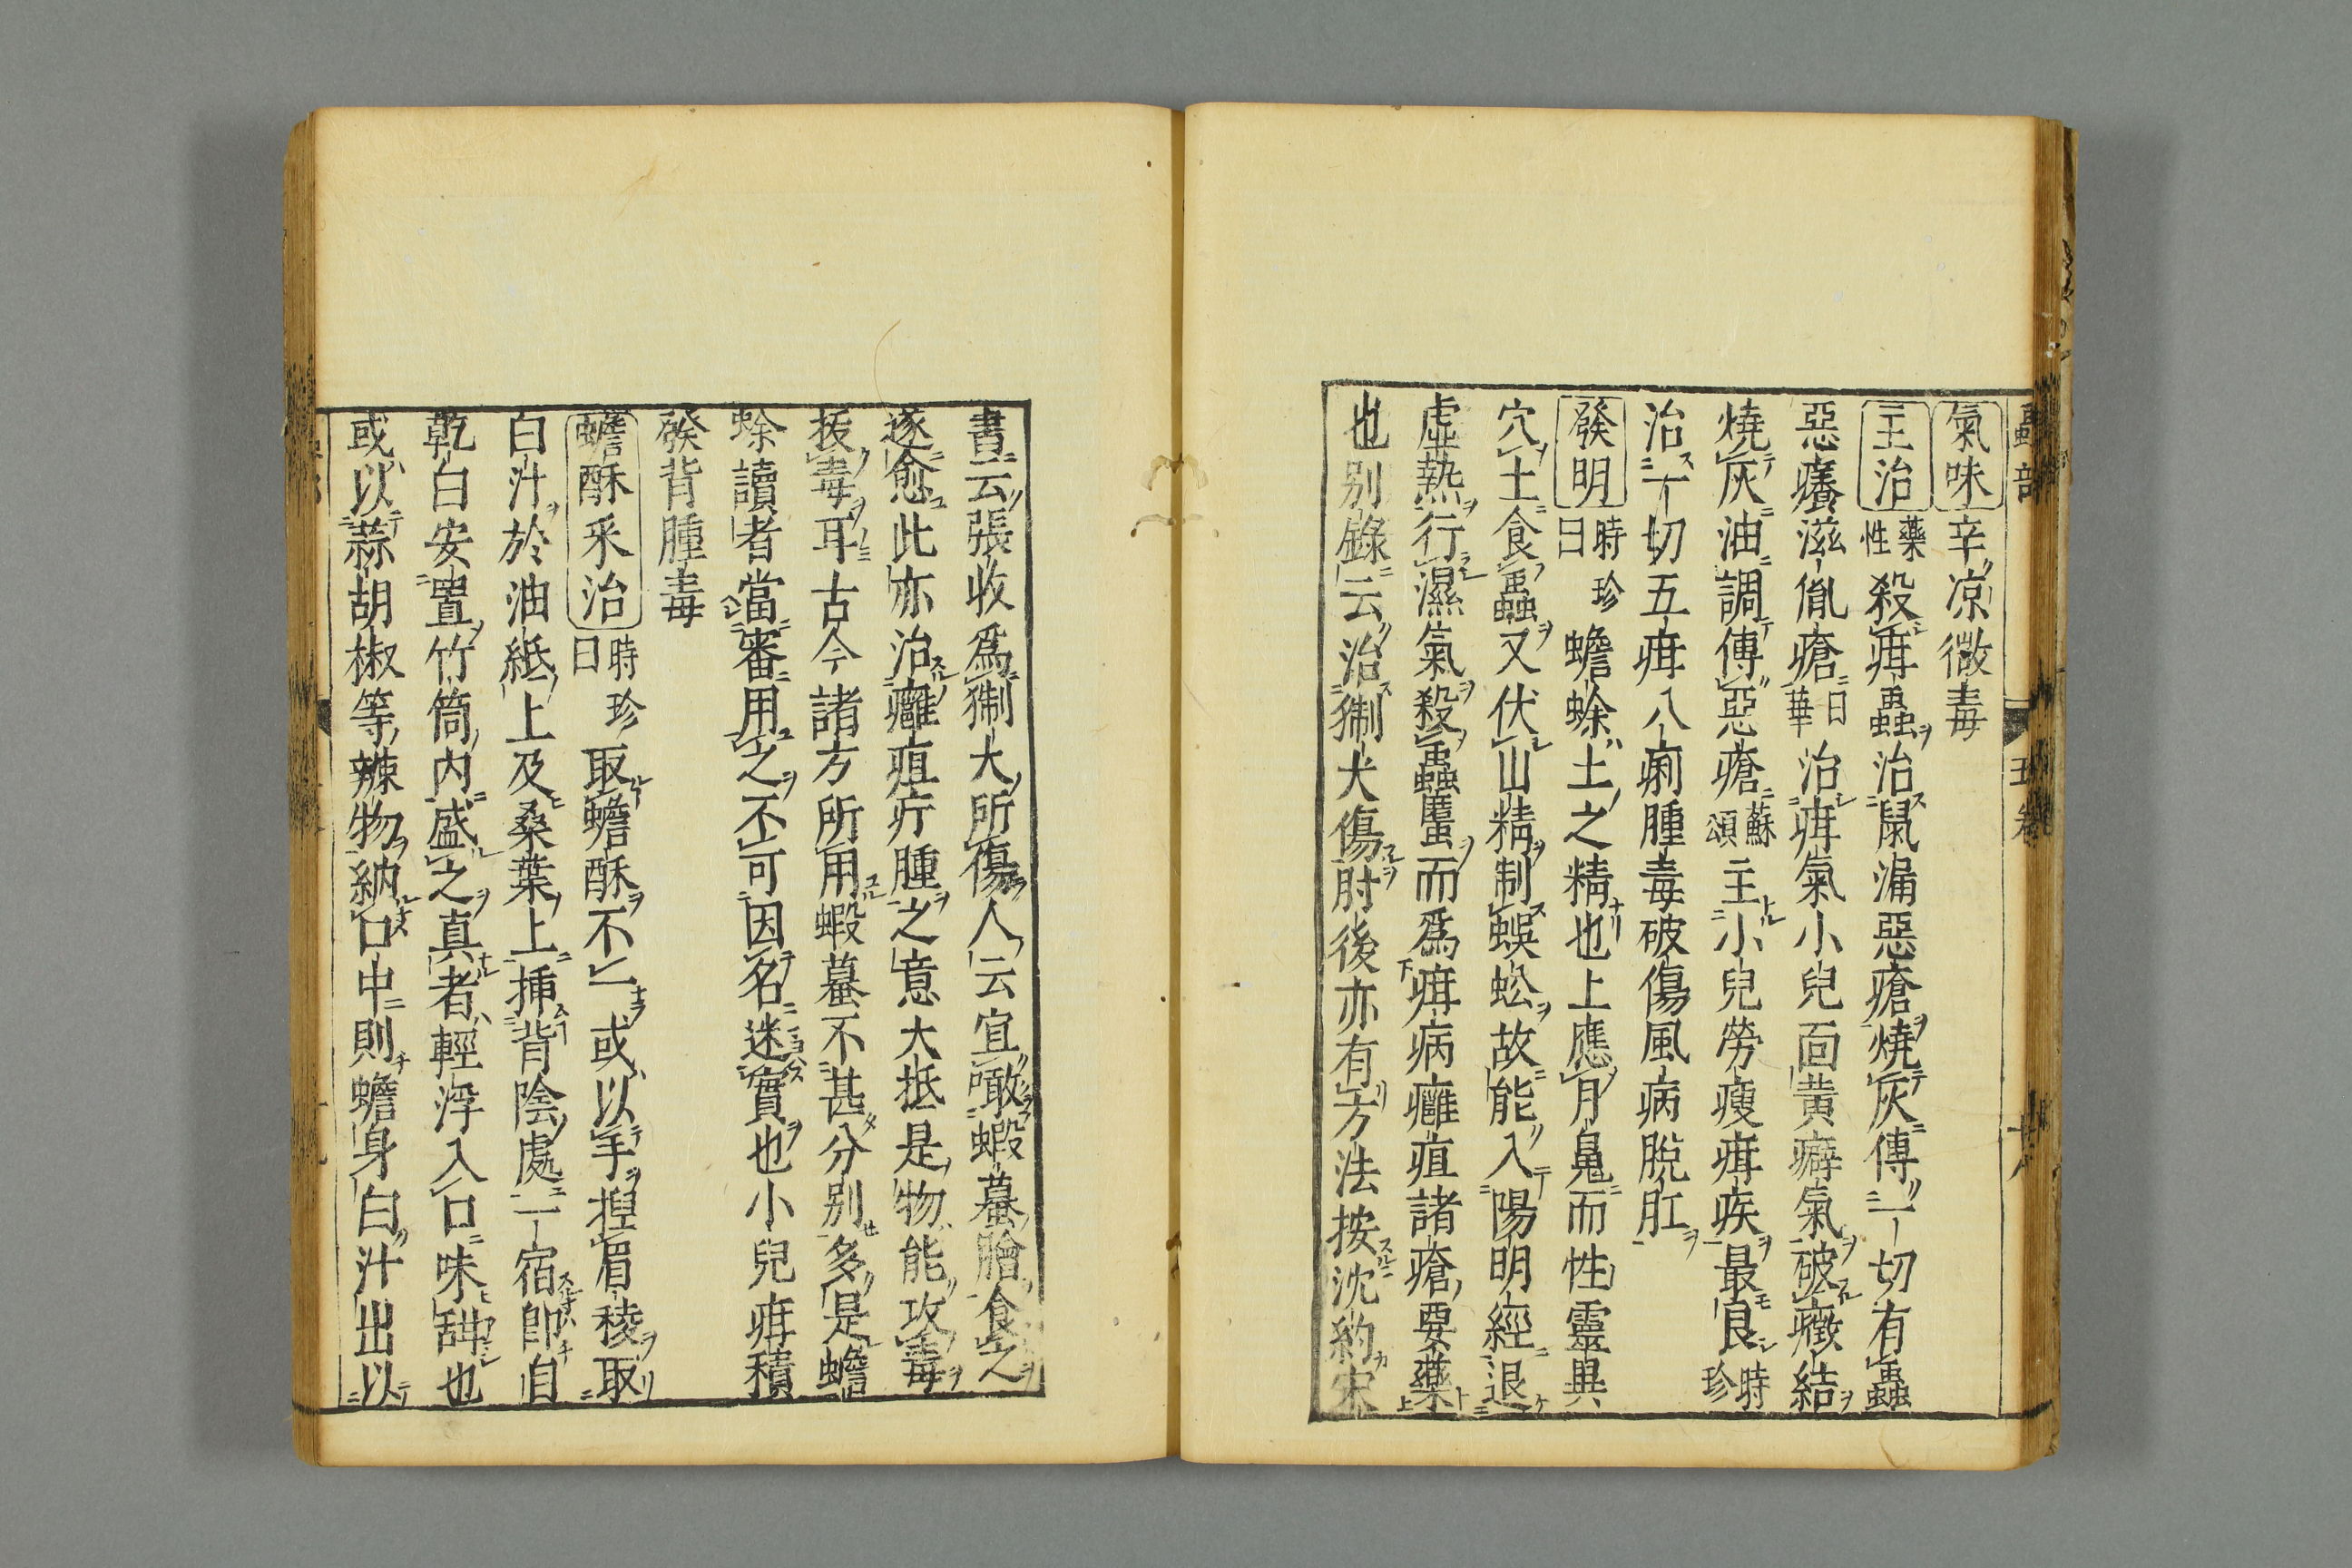 蟲部 五卷 十八
氣味辛凉微毒
主治藥性殺疳蟲治鼠漏惡瘡燒灰傅一切有蟲
惡癢滋胤瘡日華治疳氣小兒面黃癖氣破癥結
燒灰油調傅惡瘡蘇頌主小兒勞瘦疳疾最良時珍
治一切五疳八痢腫毒破傷風病脫肛
發明時珍曰蟾蜍土之精也上應月魄而性靈異
穴土食蟲又伏山精制蜈蚣故能入陽明經退
虛熱行濕氣殺蟲䘌而爲疳病癰疽諸瘡要藥
也別錄云治猘犬傷肘後亦有方法按沈約宋
書云張收爲猘犬所傷人云宜噉蝦蟇膾食之
遂愈此亦治癰疽疔腫之意大抵是物能攻毒
拔毒耳古今諸方所用蝦蟇不甚分別多是蟾
蜍讀者當審用之不可因名迷實也小兒疳積
發背腫毒
蟾酥采治時珍曰取蟾酥不一或以手捏眉稜取
白汁於油紙上及桑葉上揷背陰處一宿卽自
乾白安置竹筒內盛之真者輕浮入口味甜也
或以蒜胡椒等辣物納口中則蟾身白汁出以